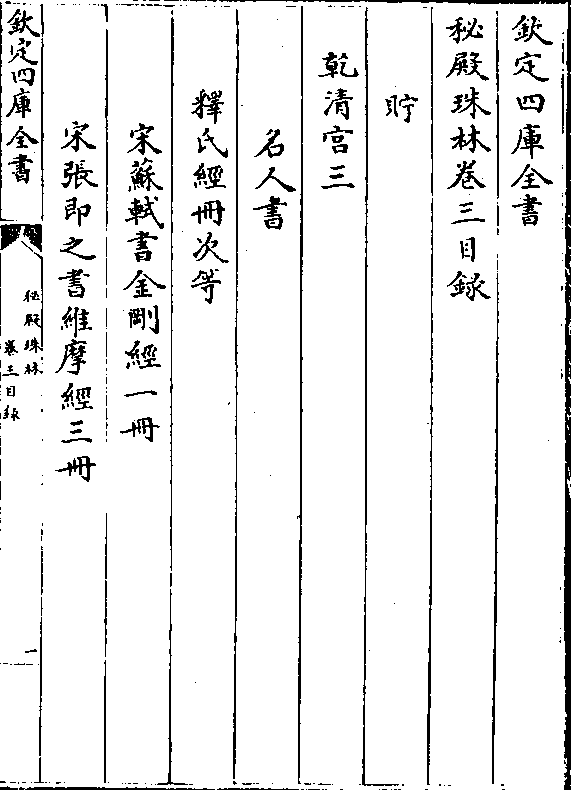 欽定四庫全書
秘殿珠林卷三目録
貯
乾清宫三
名人書
釋氏經冊次等
宋蘇軾書金剛經一冊
宋張即之書維摩經三冊
欽定四庫全書
秘殿珠林
卷三目録
一